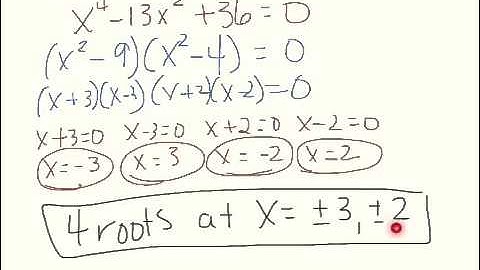 x⁴-13x²+36=0
(x²-9)(x²-4)=0
(x+3)(x-3)(x+2)(x-2)=0
x+3=0 x-3=0 x+2=0 x-2=0
x=-3 x=3 x=-2 x=2
4 roots at x=±3,±2